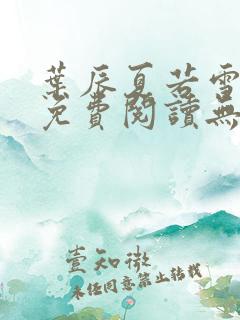 葉辰夏若雪
免費閱讀無
壹知微
未經同意禁止轉載